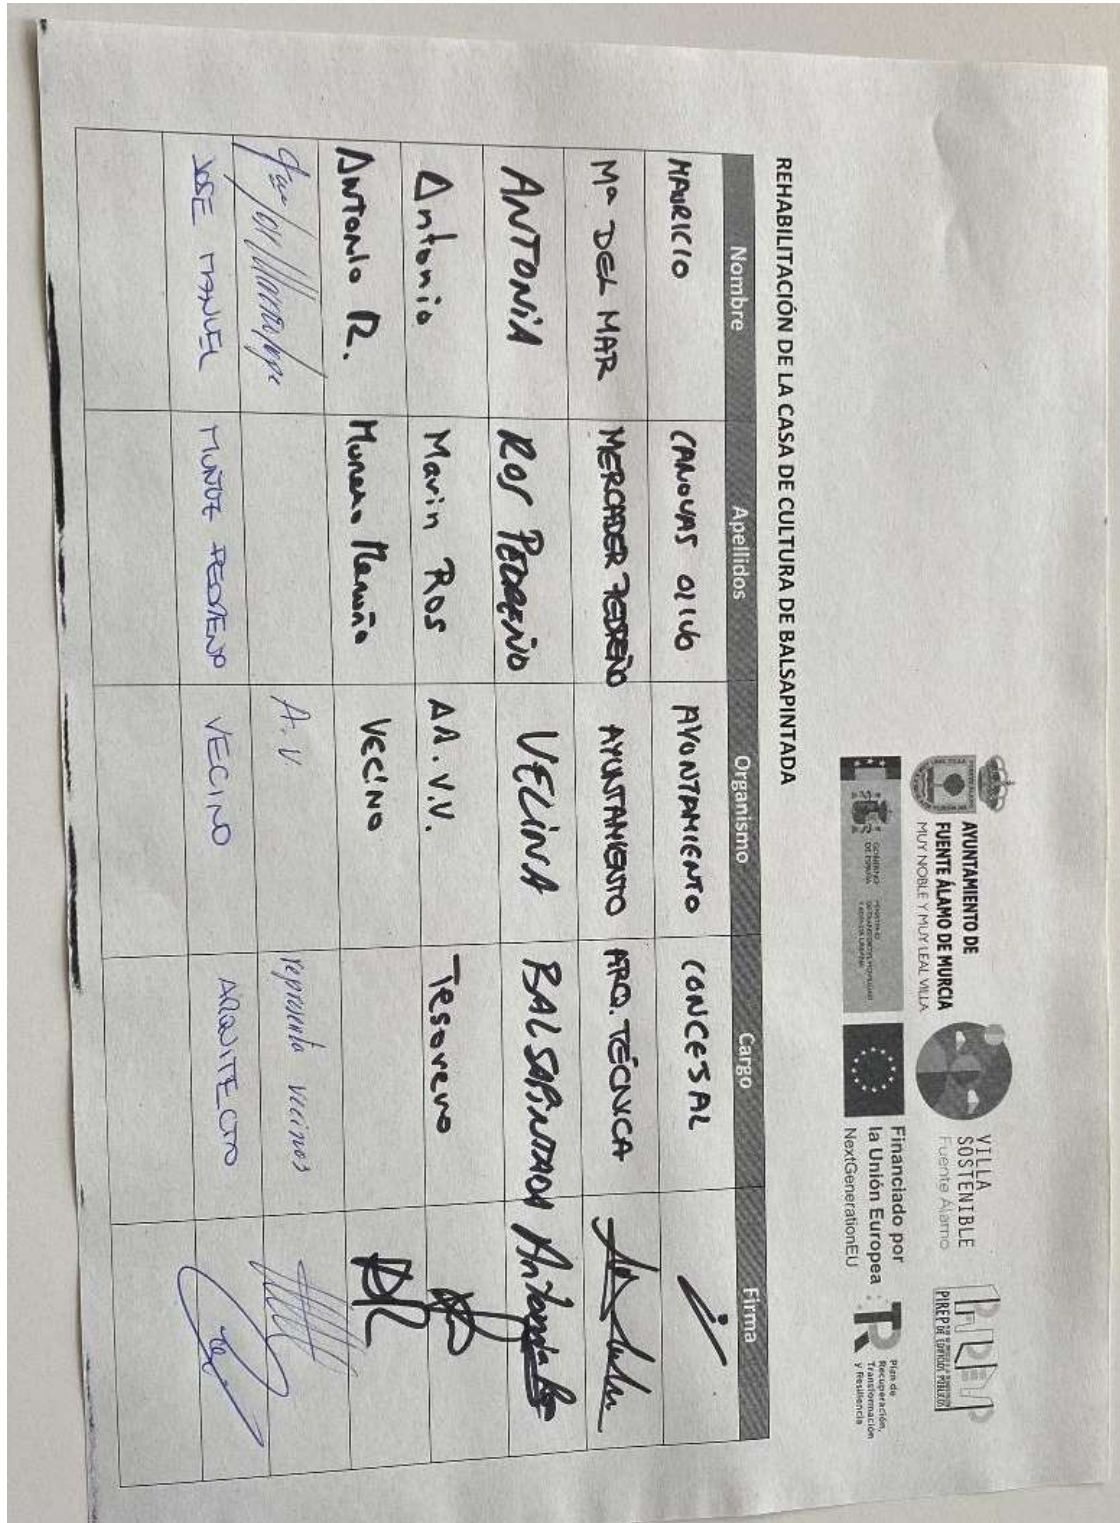 AYUNTAMIENTO DE
FUENTE ÁLAMO DE MURCIA
MUY NOBLE Y MUY LEAL VILLA
VILLA
SOSTENIBLE
Fuente Álamo
PIREP
PIREP DE EDIFICIOS PÚBLICOS
GOBIERNO
DE ESPAÑA
MINISTERIO
DE TRANSPORTES, MOVILIDAD
Y AGENDA URBANA
Financiado por
la Unión Europea
NextGenerationEU
TR
Plan de
Recuperación,
Transformación
y Resiliencia
REHABILITACIÓN DE LA CASA DE CULTURA DE BALSAPINTADA
Nombre Apellidos Organismo Cargo Firma
MAURICIO CANOVAS OLIVO AYONTAMIENTO CONCESAL
Mª DEL MAR MERCADER PEDREÑO AYUNTAMIENTO ARQ. TÉCNICA
ANTONIA ROS PEDREÑO VECINA BALSAPINTADA Antonia
Antonio Marin Ros AA.V.V. Tesorero
ANTONIO R. Moreno Vecino
A.V. representa vecinos
JOSE MANUEL MUÑOZ PEDREÑO VECINO ARQUITECTO